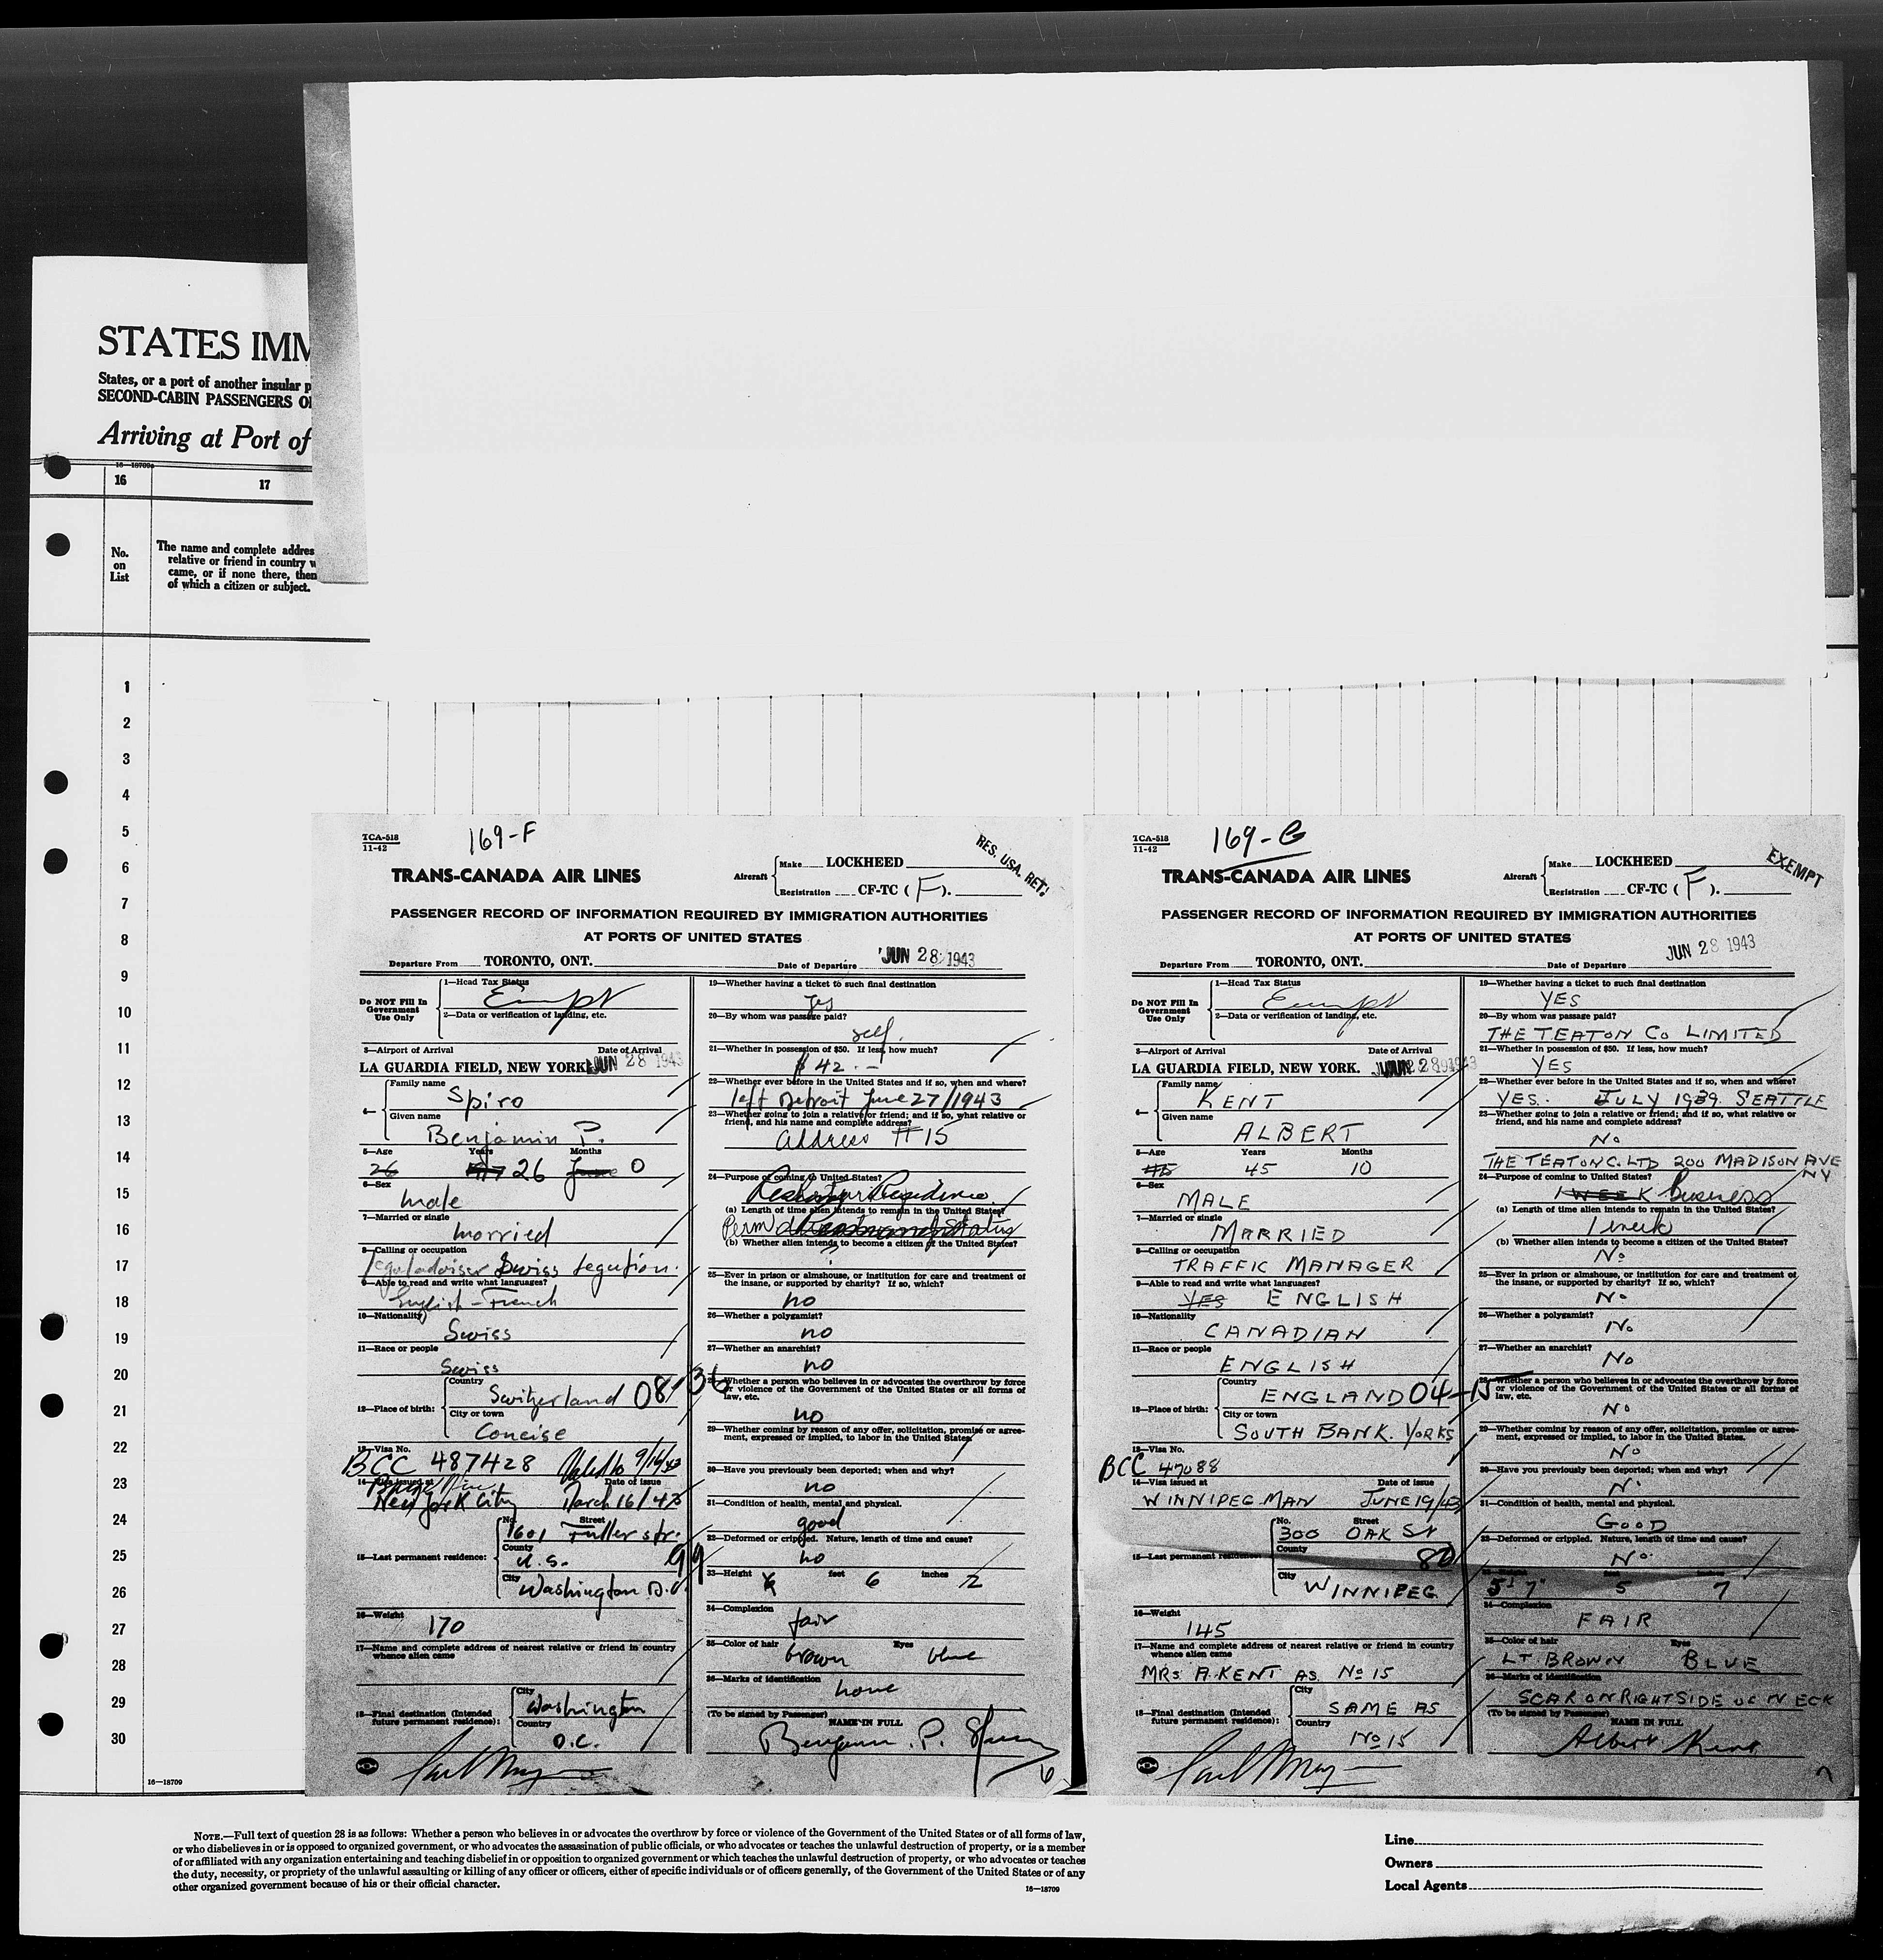 STATES IMM
States, or a port of another insular p
SECOND-CABIN PASSENGERS O
Arriving at Port of
16—18709
16
17
No.
on
List
The name and complete addres
relative or friend in country w
came, or if none there, then
of which a citizen or subject.
1
2
3
4
5
6
7
8
9
10
11
12
13
14
15
16
17
18
19
20
21
22
23
24
25
26
27
28
29
30
16—18709
TCA-518
11-42
169-F
RES. USA. RET.
TRANS-CANADA AIR LINES
Aircraft
Make LOCKHEED
Registration CF-TC (F).
PASSENGER RECORD OF INFORMATION REQUIRED BY IMMIGRATION AUTHORITIES
AT PORTS OF UNITED STATES
Departure From TORONTO, ONT. Date of Departure JUN 28 1943
Do NOT Fill In
Government
Use Only
1—Head Tax Status
Exempt
2—Data or verification of landing, etc.
3—Airport of Arrival Date of Arrival
LA GUARDIA FIELD, NEW YORK. JUN 28 1943
4—
Family name
Spiro
Given name
Benjamin P.
5—Age Years Months
26 26 June 0
6—Sex
male
7—Married or single
married
8—Calling or occupation
legal adviser Swiss Legation.
9—Able to read and write what languages?
English - French
10—Nationality
Swiss
11—Race or people
Swiss
12—Place of birth:
Country
Switzerland 08-36
City or town
Concise
13—Visa No.
BCC 487428 Valid to 9/16/43
14—Visa issued at Date of issue
New York City March 16/43
15—Last permanent residence:
No. Street
1601 Fuller str.
County
U.S. 99
City
Washington D.C.
16—Weight
170
17—Name and complete address of nearest relative or friend in country
whence alien came
18—Final destination (Intended
future permanent residence):
City
Washington
Country
D.C.
19—Whether having a ticket to such final destination
yes
20—By whom was passage paid?
self.
21—Whether in possession of $50. If less, how much?
$ 42.-
22—Whether ever before in the United States and if so, when and where?
left Detroit June 27/1943
23—Whether going to join a relative or friend; and if so, what relative or
friend, and his name and complete address?
Address # 15
24—Purpose of coming to United States?
Residence
(a) Length of time alien intends to remain in the United States?
Perm
(b) Whether alien intends to become a citizen of the United States?
25—Ever in prison or almshouse, or institution for care and treatment of
the insane, or supported by charity? If so, which?
no
26—Whether a polygamist?
no
27—Whether an anarchist?
no
28—Whether a person who believes in or advocates the overthrow by force
or violence of the Government of the United States or all forms of
law, etc.
no
29—Whether coming by reason of any offer, solicitation, promise or agree-
ment, expressed or implied, to labor in the United States.
30—Have you previously been deported; when and why?
no
31—Condition of health, mental and physical.
good
32—Deformed or crippled. Nature, length of time and cause?
no
33—Height feet 6 inches 2
34—Complexion
fair
35—Color of hair Eyes
brown blue
36—Marks of identification
none
(To be signed by Passenger)
NAME IN FULL
Benjamin P. Spiro
6
TCA-518
11-42
169-G
EXEMPT
TRANS-CANADA AIR LINES
Aircraft
Make LOCKHEED
Registration CF-TC (F).
PASSENGER RECORD OF INFORMATION REQUIRED BY IMMIGRATION AUTHORITIES
AT PORTS OF UNITED STATES
Departure From TORONTO, ONT. Date of Departure JUN 28 1943
Do NOT Fill In
Government
Use Only
1—Head Tax Status
Exempt
2—Data or verification of landing, etc.
3—Airport of Arrival Date of Arrival
LA GUARDIA FIELD, NEW YORK. JUN 28 1943
4—
Family name
KENT
Given name
ALBERT
5—Age Years Months
45 45 10
6—Sex
MALE
7—Married or single
MARRIED
8—Calling or occupation
TRAFFIC MANAGER
9—Able to read and write what languages?
YES ENGLISH
10—Nationality
CANADIAN
11—Race or people
ENGLISH
12—Place of birth:
Country
ENGLAND 04-15
City or town
SOUTH BANK. YORKS
13—Visa No.
BCC 47088
14—Visa issued at Date of issue
WINNIPEG MAN JUNE 19/43
15—Last permanent residence:
No. Street
300 OAK ST
County
80
City
WINNIPEG
16—Weight
145
17—Name and complete address of nearest relative or friend in country
whence alien came
MRS A. KENT AS No 15
18—Final destination (Intended
future permanent residence):
City
SAME AS
Country
No 15
19—Whether having a ticket to such final destination
YES
20—By whom was passage paid?
THE T EATON CO LIMITED
21—Whether in possession of $50. If less, how much?
YES
22—Whether ever before in the United States and if so, when and where?
YES. JULY 1939 SEATTLE
23—Whether going to join a relative or friend; and if so, what relative or
friend, and his name and complete address?
No
THE T EATON C. LTD 200 MADISON AVE
NY
24—Purpose of coming to United States?
1 WEEK business
(a) Length of time alien intends to remain in the United States?
1 week
(b) Whether alien intends to become a citizen of the United States?
No
25—Ever in prison or almshouse, or institution for care and treatment of
the insane, or supported by charity? If so, which?
No
26—Whether a polygamist?
No
27—Whether an anarchist?
No
28—Whether a person who believes in or advocates the overthrow by force
or violence of the Government of the United States or all forms of
law, etc.
No
29—Whether coming by reason of any offer, solicitation, promise or agree-
ment, expressed or implied, to labor in the United States.
No
30—Have you previously been deported; when and why?
No
31—Condition of health, mental and physical.
GOOD
32—Deformed or crippled. Nature, length of time and cause?
No
33—Height feet inches
5' 7" 5 7
34—Complexion
FAIR
35—Color of hair Eyes
LT BROWN BLUE
36—Marks of identification
SCAR ON RIGHT SIDE OF NECK
(To be signed by Passenger)
NAME IN FULL
Albert Kent
7
NOTE.—Full text of question 28 is as follows: Whether a person who believes in or advocates the overthrow by force or violence of the Government of the United States or of all forms of law,
or who disbelieves in or is opposed to organized government, or who advocates the assassination of public officials, or who advocates or teaches the unlawful destruction of property, or is a member
of or affiliated with any organization entertaining and teaching disbelief in or opposition to organized government or which teaches the unlawful destruction of property, or who advocates or teaches
the duty, necessity, or propriety of the unlawful assaulting or killing of any officer or officers, either of specific individuals or of officers generally, of the Government of the United States or of any
other organized government because of his or their official character.
16—18709
Line
Owners
Local Agents